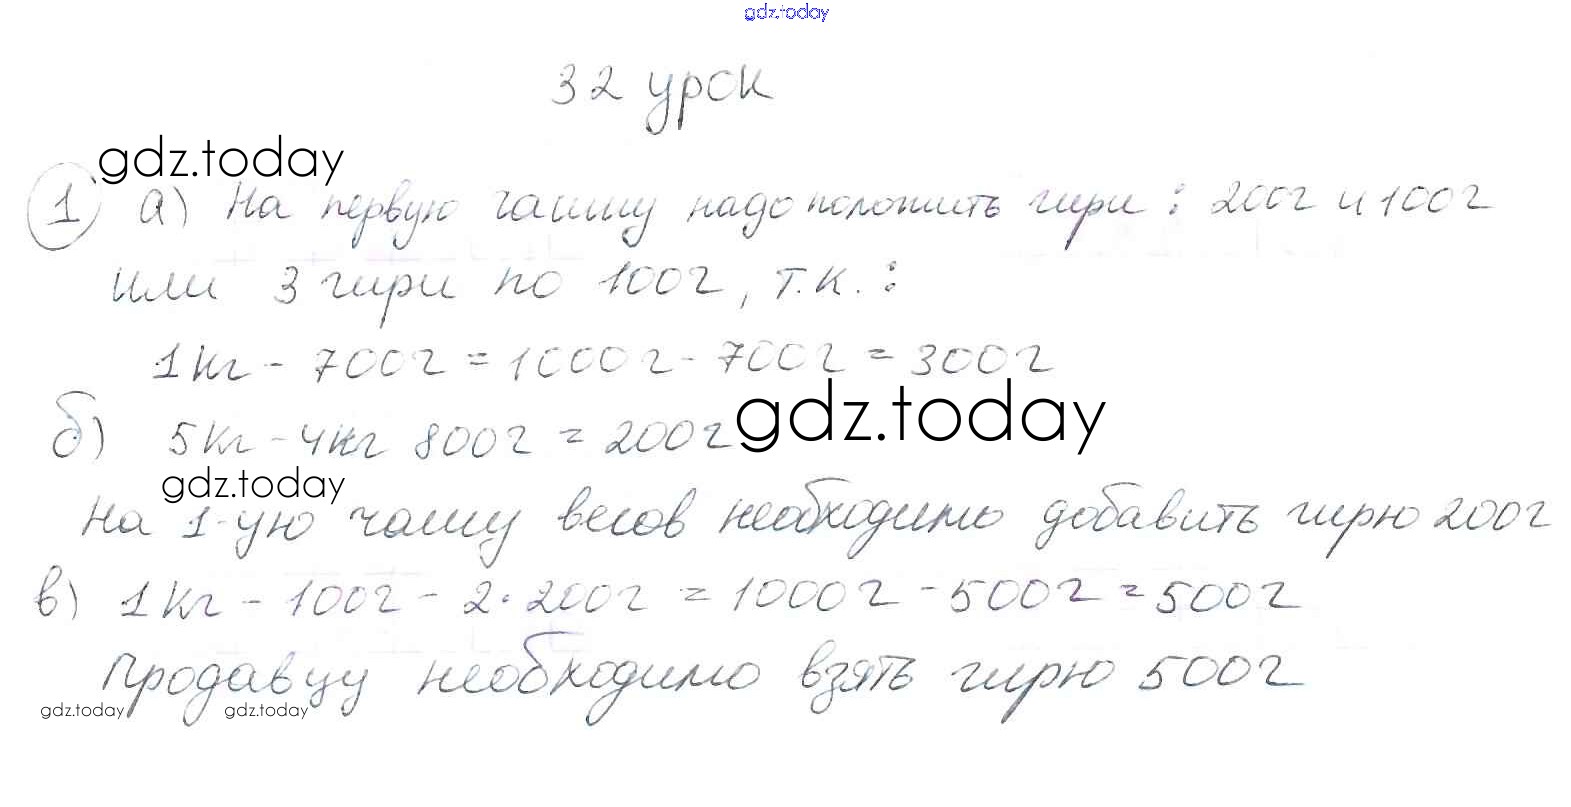 gdz.today
32 урок
gdz.today
1 а) На первую чашу надо положить гири: 200г и 100г
или 3 гири по 100г, т.к.:
1кг - 700г = 1000г - 700г = 300г
б) 5кг - 4кг 800г = 200г
gdz.today
gdz.today
На 1-ую чашу весов необходимо добавить гирю 200г
в) 1кг - 100г - 2·200г = 1000г - 500г = 500г
Продавцу необходимо взять гирю 500г
gdz.today gdz.today